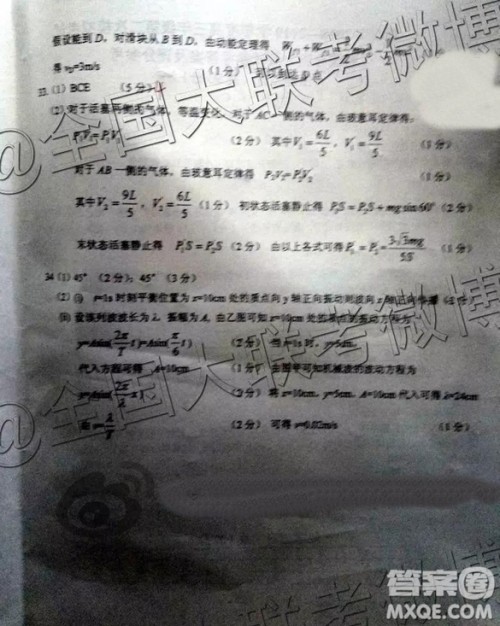 假设能到 D，对滑块从 B 到 D，由动能定理得
得 v_D=3m/s （1分）
33. (1) BCE （5分）
(2) 对于活塞两侧的气体，等温变化，对于 AC 一侧的气体，由玻意耳定律得：
P₁V₁=P₁'V₁' （2分） 其中 V₁=6L/5，V₁'=9L/5 （1分）
对于 AB 一侧的气体，由玻意耳定律得 P₂V₂=P₂'V₂' （1分）
其中 V₂=9L/5，V₂'=6L/5 （1分） 初状态活塞静止得 P₁S=P₂S+mg sin60° （2分）
末状态活塞静止得 P₁'S=P₂'S （2分） 由以上各式可得 P₁'=P₂'=3√3mg/5S （1分）
34 (1) 45° （2分）；45° （3分）
(2) (i) t=1s 时刻平衡位置为 x=10cm 处的质点向 y 轴正向振动则波向 x 轴正向传播
(ii) 设该列波波长为 λ，振幅为 A，由乙图可知 x=10cm 处的质点的振动方程为
y=Asin(2π/T t)=Asin(π/6 t) （2分） 当 t=1s 时，y=5cm，
代入方程可得 A=10cm （1分） 由图甲可知机械波的波动方程为
y=Asin(2π/λ x) （2分） 将 x=10cm，y=5cm，A=10cm 代入可得 λ=24cm
由 v=λ/T （2分） 可得 v=0.02m/s （1分）
@全国大联考微博
@全国大联考微博
答案圈
MXQE.COM